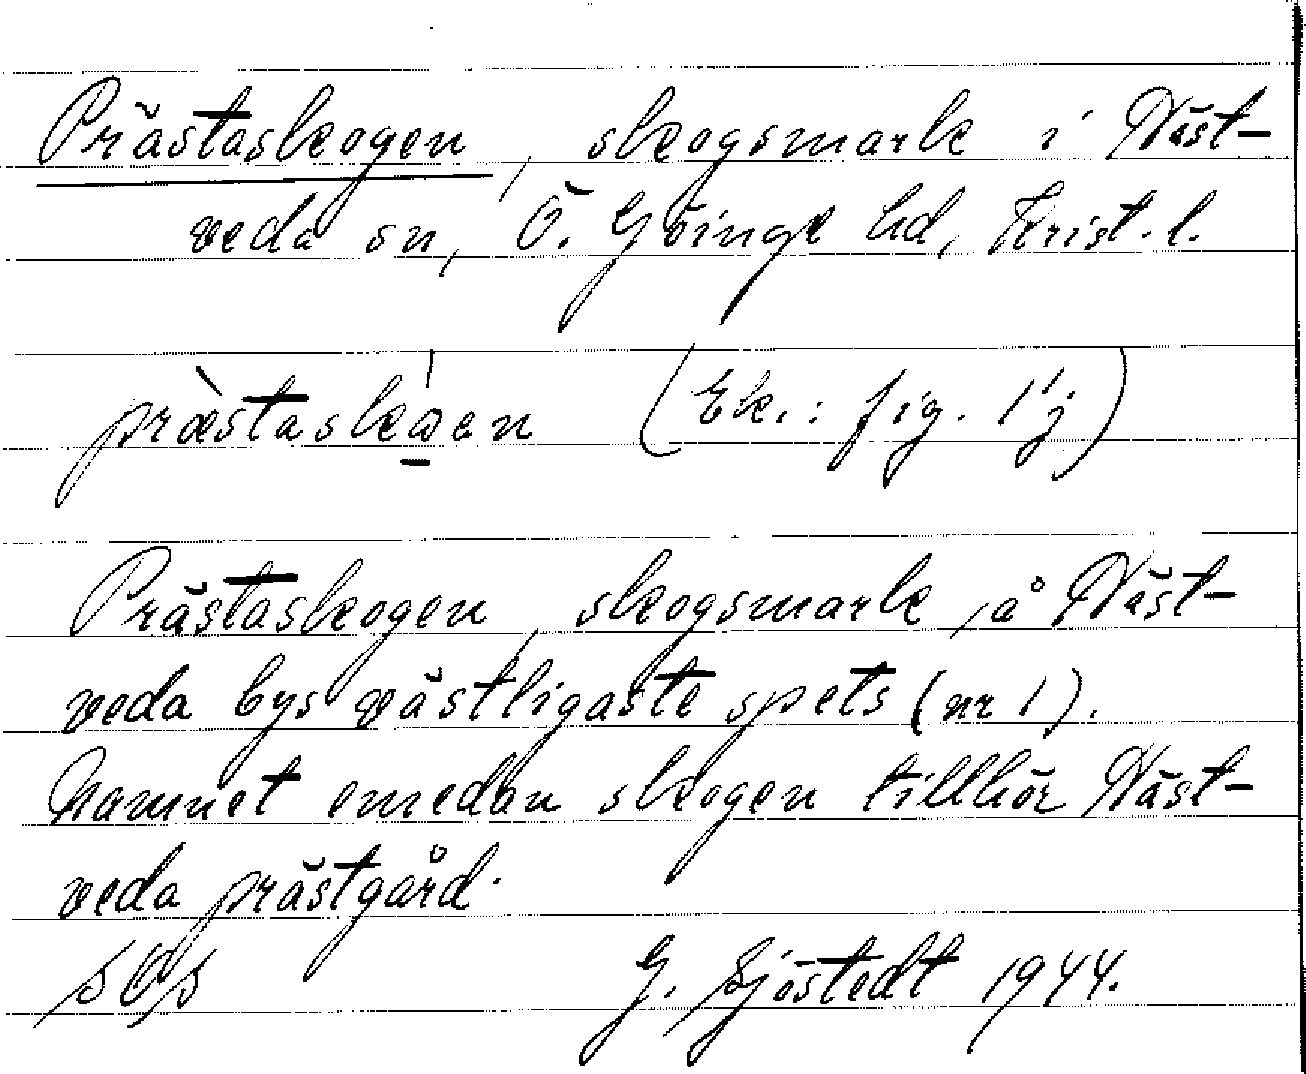 Prästaskogen, skogsmark i Näst-
veda sn, Ö. Göinge hd, Krist. l.
præ̀staskǫ́en (Ek.: fig. 1 j)
Prästaskogen, skogsmark, å Näst-
veda bys västligaste spets (nr 1).
Namnet emedan skogen tillhör Näst-
veda prästgård.
G. Sjöstedt 1944.